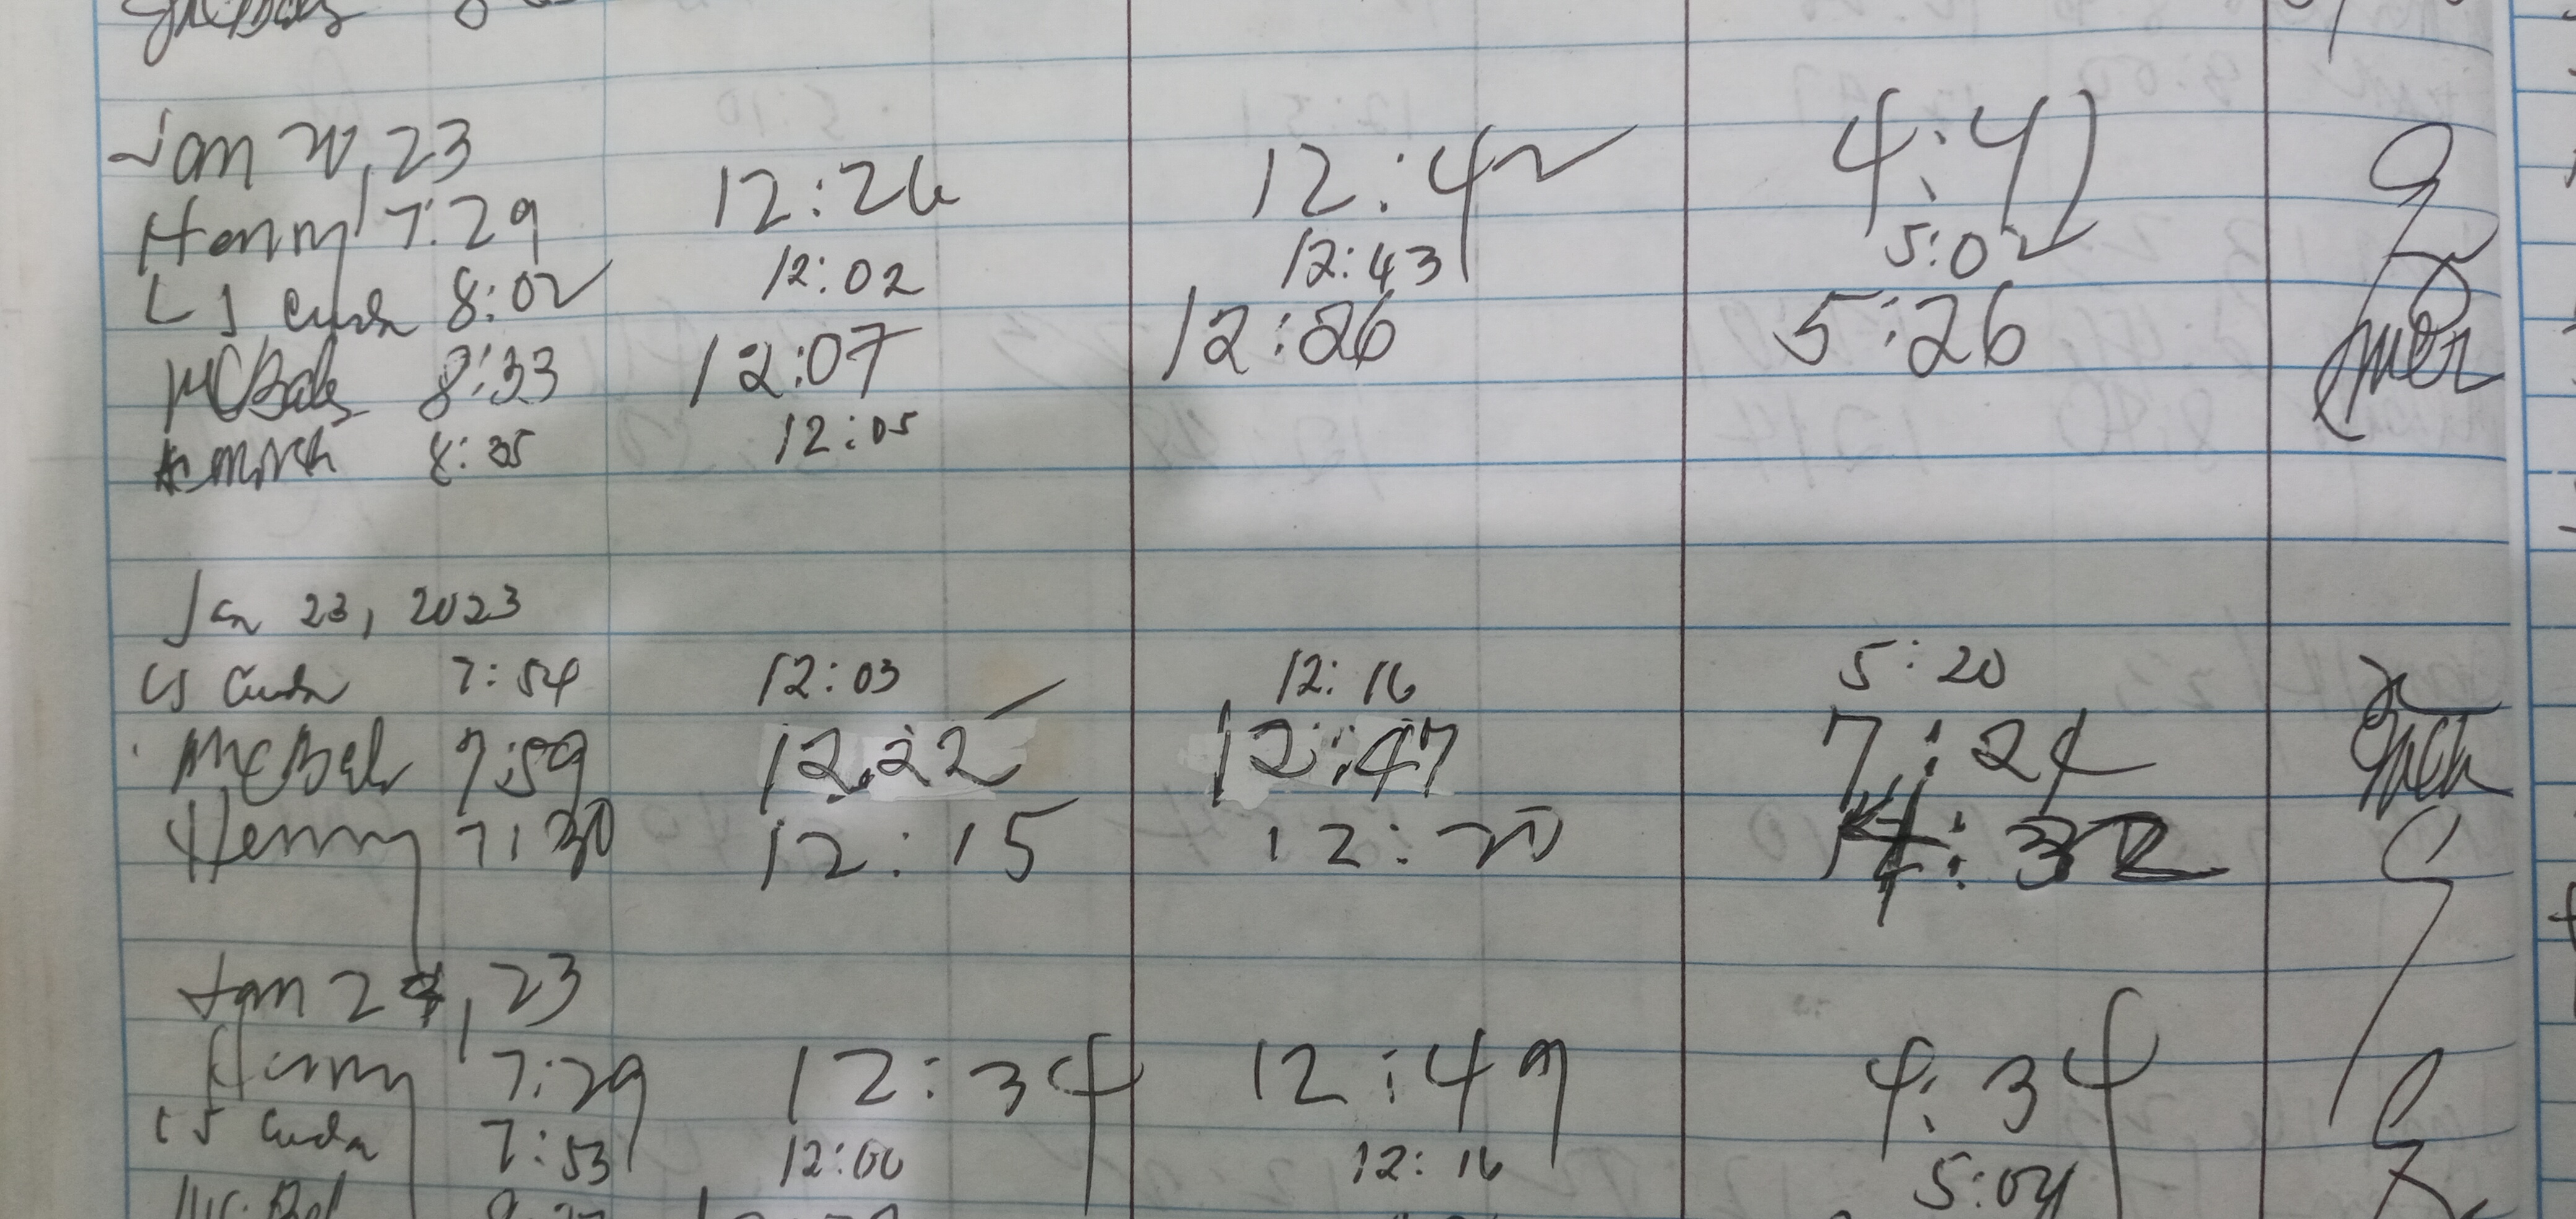 Jan 20, 23
Henry 7:29 12:26 12:42 4:41
LJ Cuda 8:02 12:02 12:43 5:02
McBal 8:33 12:07 12:26 5:26
8:35 12:05
Jan 23, 2023
LJ Cuda 7:54 12:03 12:16 5:20
McBal 7:59 12:22 12:47 7:24
Henry 7:30 12:15 12:30 4:32
Jan 24, 23
Henry 7:29 12:34 12:49 4:34
LJ Cuda 7:53 12:00 12:16 5:04